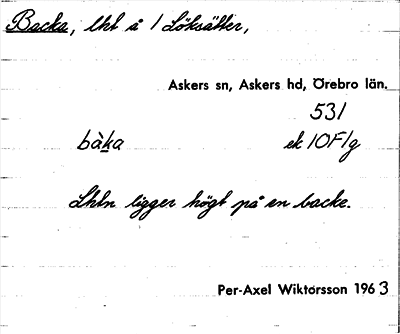 Backa, lht å 1 Löksätter,
Askers sn, Askers hd, Örebro län.
531
bàka ek 10F1g
Lhtn ligger högt på en backe.
Per-Axel Wiktorsson 1963